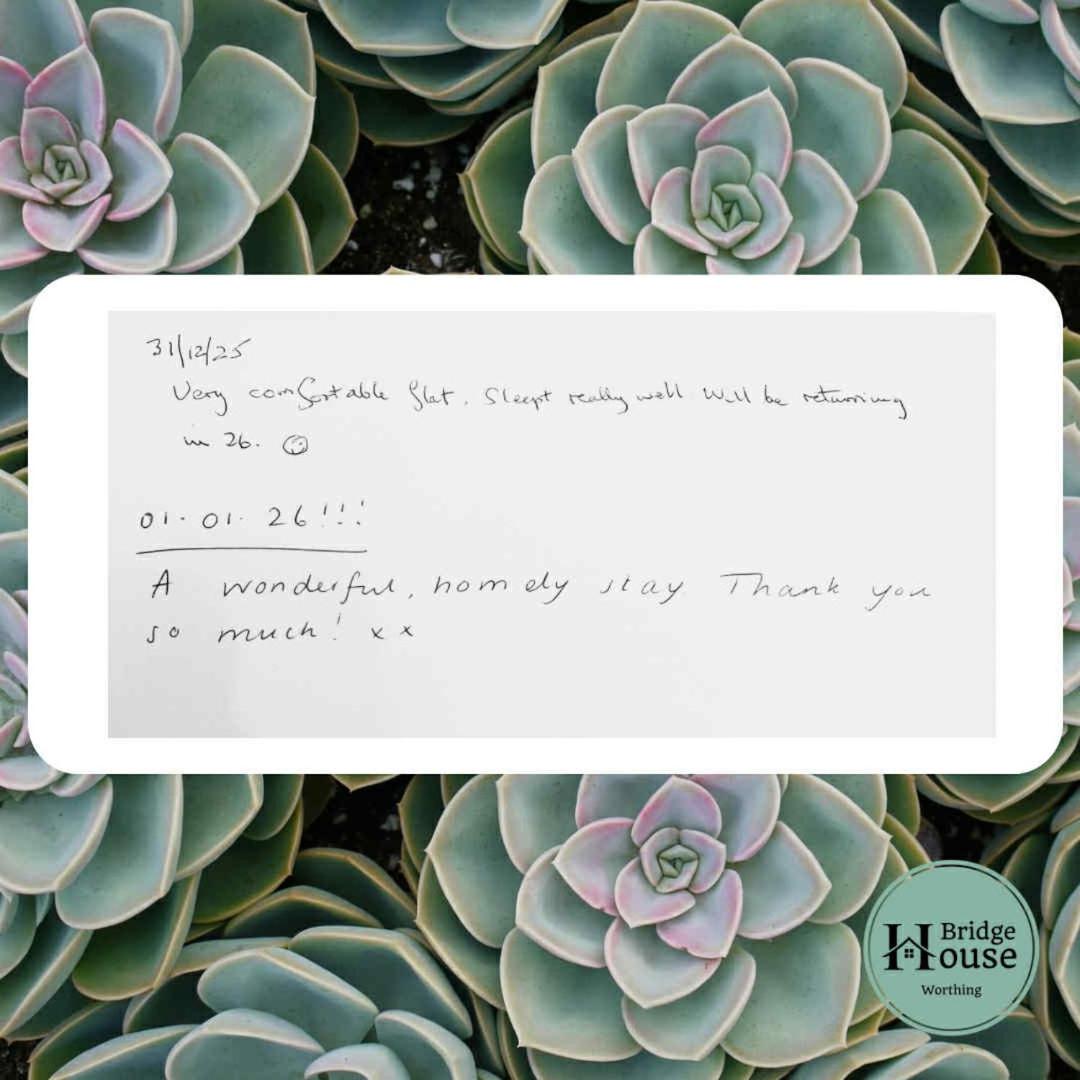 31/12/25
Very comfortable flat. Slept really well. Will be returning
in 26. ☺
01. 01. 26!!!
A wonderful, homely stay. Thank you
so much! x x
Bridge
House
Worthing